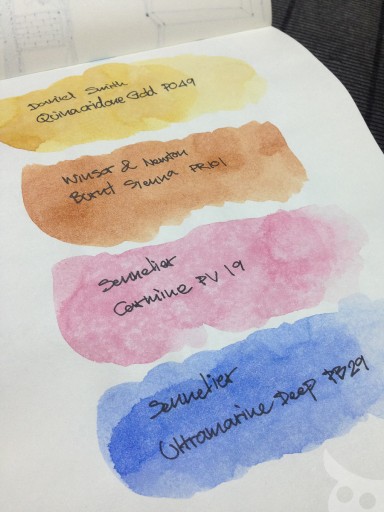 Daniel Smith
Quinacridone Gold PO49
Winsor & Newton
Burnt Sienna PR101
Sennelier
Carmine PV 19
Sennelier
Ultramarine Deep PB29